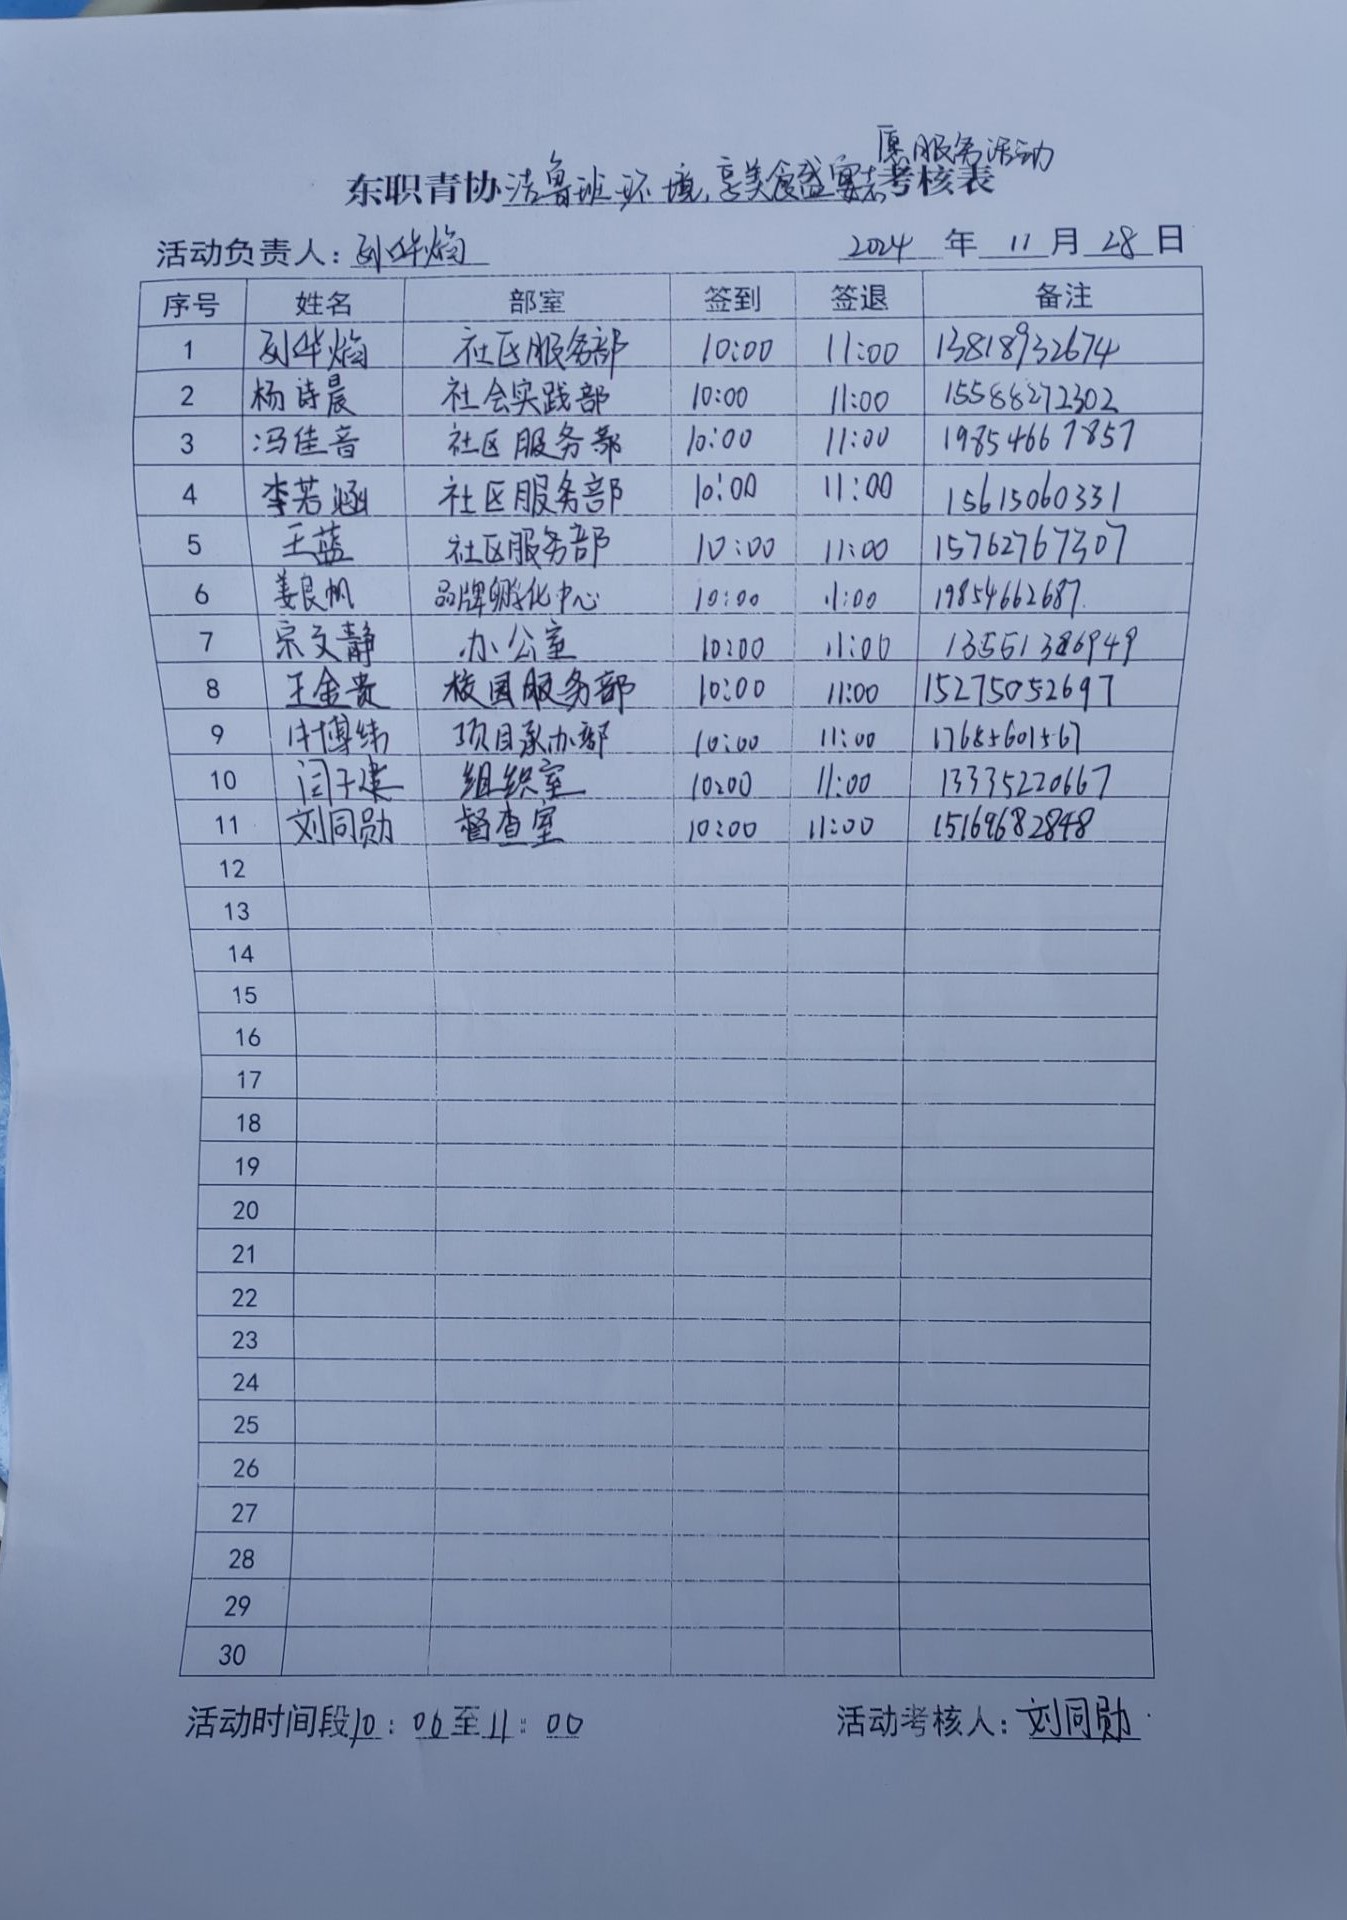 愿服务活动
东职青协洁鲁班环境,享美食盛宴志考核表
活动负责人:刘华焰 2024年11月28日
序号 姓名 部室 签到 签退 备注
1 刘华焰 社区服务部 10:00 11:00 13818932674
2 杨诗晨 社会实践部 10:00 11:00 15588272302
3 冯佳音 社区服务部 10:00 11:00 19854667857
4 李若涵 社区服务部 10:00 11:00 15615060331
5 王蓝 社区服务部 10:00 11:00 15762767307
6 姜良帆 品牌孵化中心 10:00 11:00 19854662687
7 宗文静 办公室 10:00 11:00 13561386949
8 王金贵 校园服务部 10:00 11:00 15275052697
9 许博纬 项目承办部 10:00 11:00 17685601567
10 闫子建 组织室 10:00 11:00 13335220667
11 刘同勋 督查室 10:00 11:00 15169682848
12
13
14
15
16
17
18
19
20
21
22
23
24
25
26
27
28
29
30
活动时间段10:00至11:00 活动考核人:刘同勋